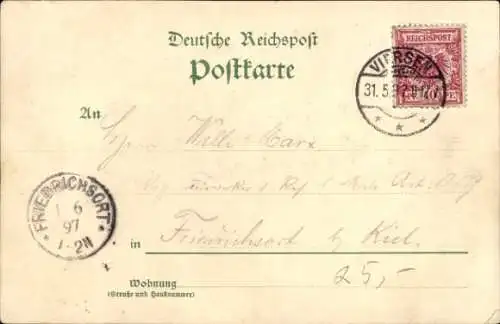 Deutsche Reichspost
Postkarte
REICHSPOST
VIERSEN
31.5.97
An
Herrn Willi Marx
FRIEDRICHSORT
1 6
97
1-2N
in Friedrichsort by Kiel.
Wohnung
(Straße und Hausnummer)
25,-